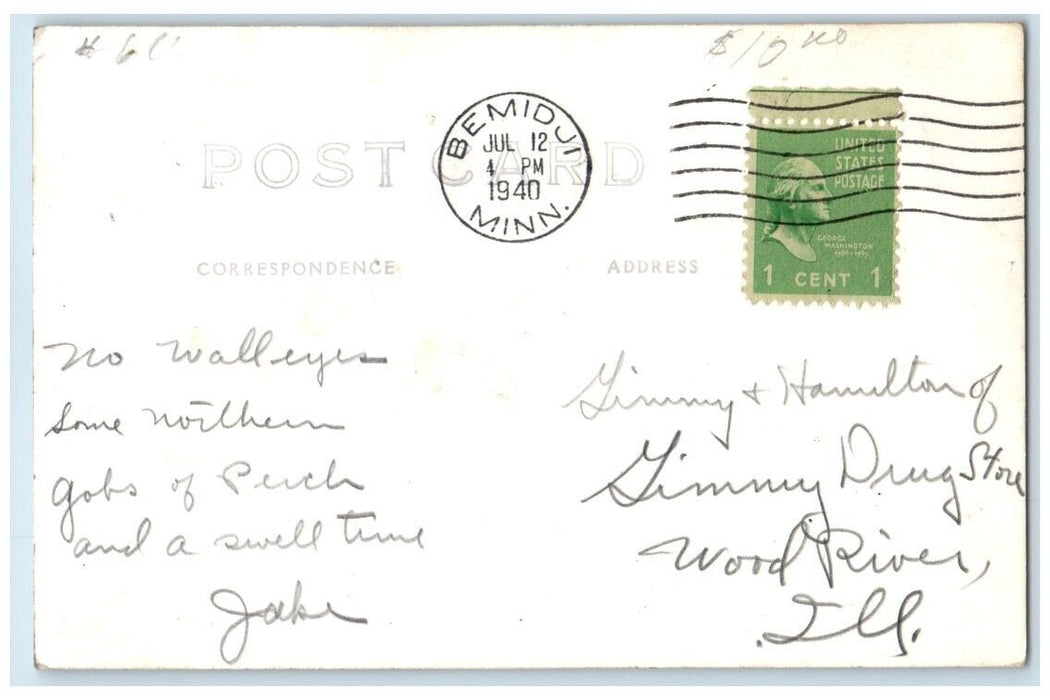 $10.00
BEMIDJI
JUL 12
4 PM
1940
MINN.
UNITED
STATES
POSTAGE
GEORGE
WASHINGTON
1789-1797
1 CENT 1
POST CARD
CORRESPONDENCE
ADDRESS
no walleyes
some northern
gobs of Perch
and a swell time
Jake
Gimmy + Hamilton of
Gimmy Drug Store
Wood River,
Ill.